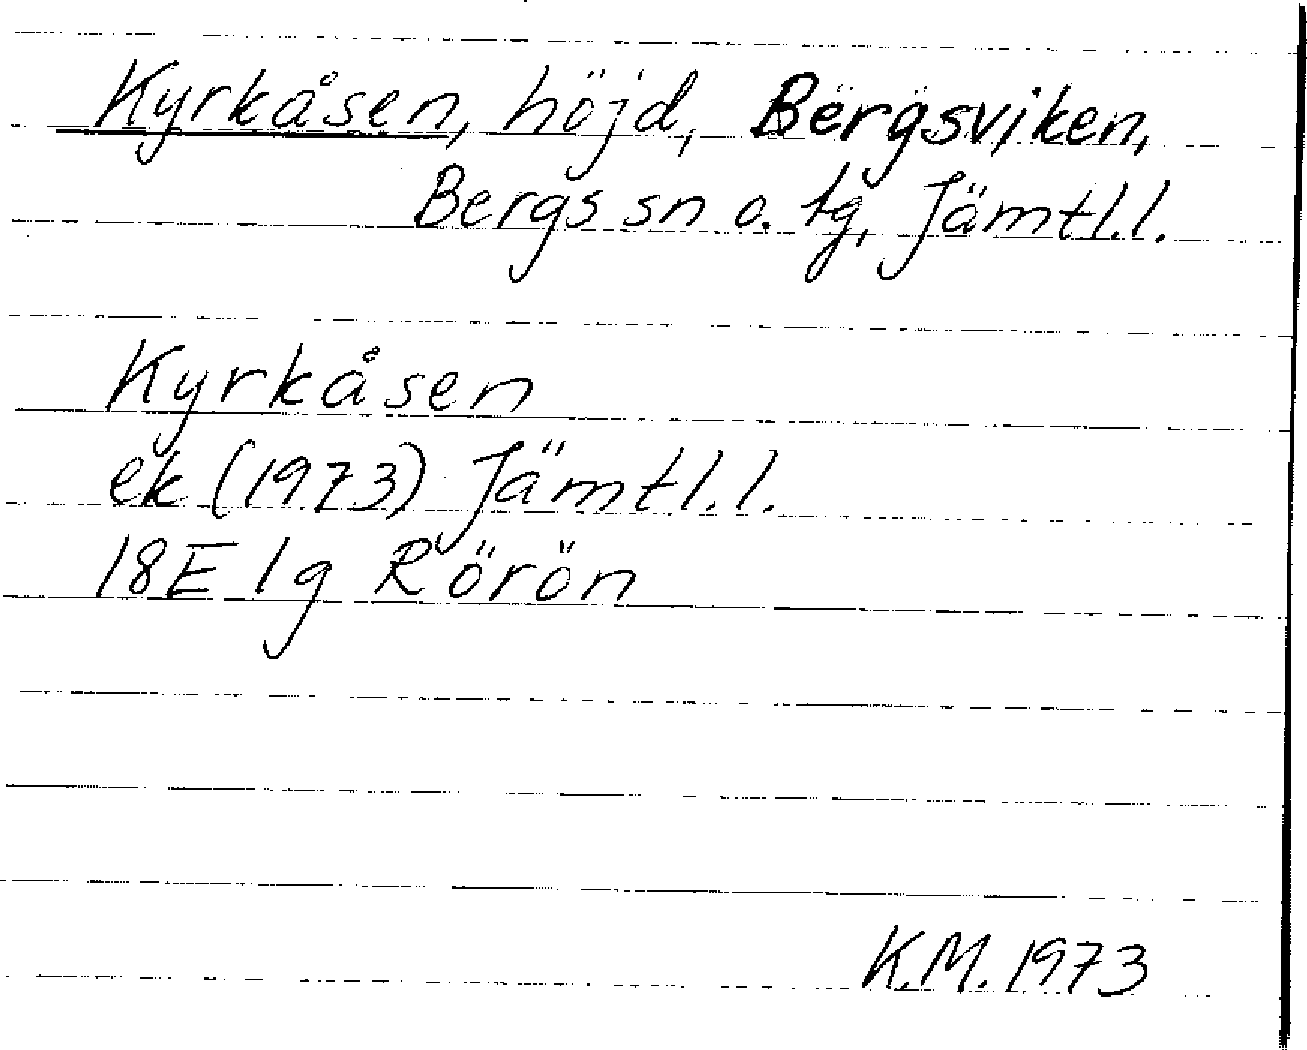 Kyrkåsen, höjd, Bergsviken,
Bergs sn o. tg, Jämtl.l.
Kyrkåsen
ek (1973) Jämtl.l.
18E 1g Rörön
K.M. 1973